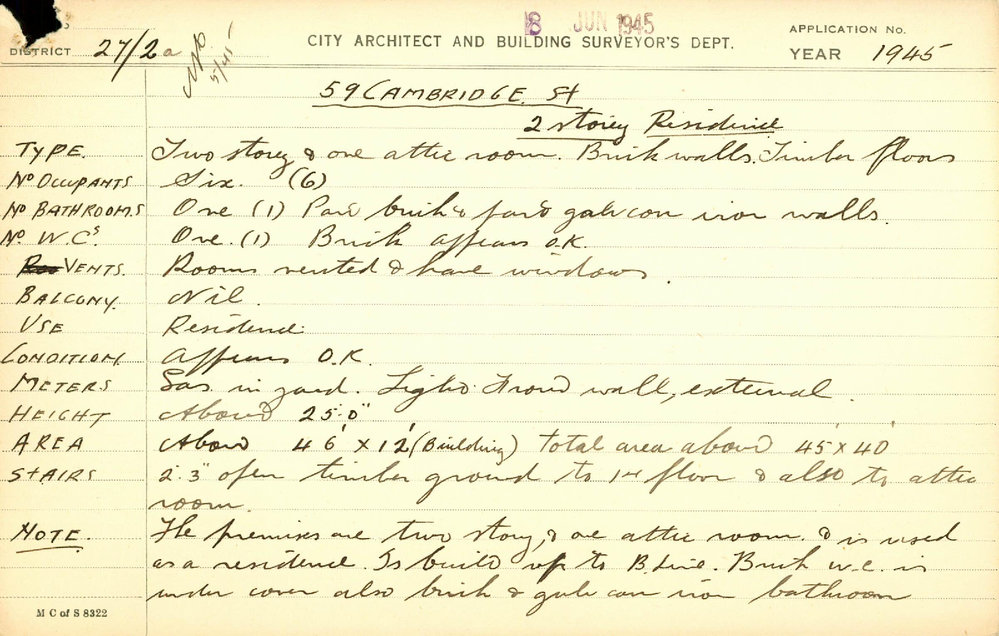 8 JUN 1945
DISTRICT 27/2a
5/45
CITY ARCHITECT AND BUILDING SURVEYOR'S DEPT.
APPLICATION No.
YEAR 1945
59 CAMBRIDGE St
2 storey Residence
TYPE. Two storey & one attic room. Brick walls. Timber floors
No OCCUPANTS Six. (6)
No BATHROOMS One (1) Part brick & part galv con iron walls.
No W.C.s One. (1) Brick appears O.K.
VENTS. Rooms vented & have windows.
BALCONY. Nil.
USE Residence.
CONDITION Appears O.K.
METERS Gas in yard. Light Front wall, external.
HEIGHT About 25'.0"
AREA About 46' x 12' (Building) total area about 45' x 40'
STAIRS 2'.3" open timber ground to 1st floor & also to attic
room.
NOTE. The premises are two story, & one attic room & is used
as a residence. Is built up to B. Line. Brick w.c. is
under cover also brick & galv con iron bathroom
M C of S 8322